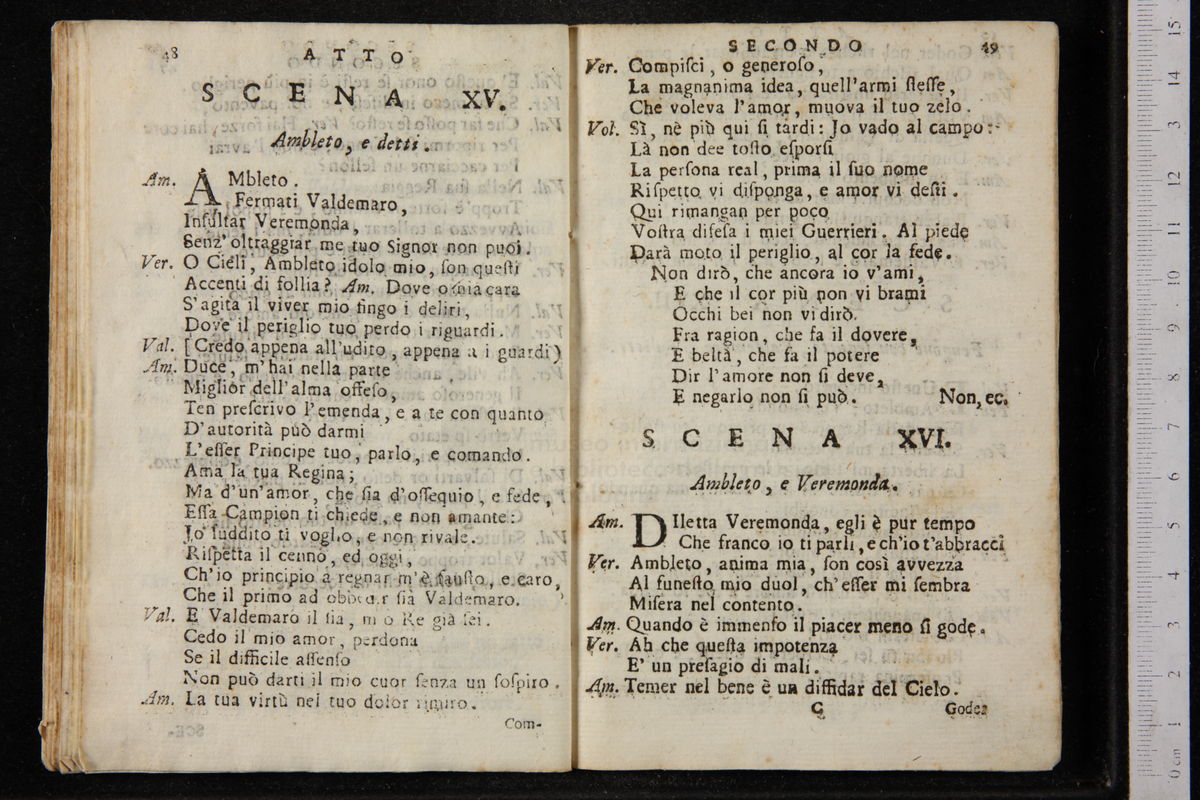 48 ATTO
SCENA XV.
Ambleto, e detti.
Am. AMbleto.
Fermati Valdemaro,
Insultar Veremonda,
Senz' oltraggiar me tuo Signor non puoi.
Ver. O Cieli, Ambleto idolo mio, ſon queſti
Accenti di follia? Am. Dove o mia cara
S'agita il viver mio fingo i deliri,
Dove il periglio tuo perdo i riguardi.
Val. [Credo appena all'udito, appena a i guardi)
Am. Duce, m'hai nella parte
Miglior dell'alma offeſo,
Ten preſcrivo l'emenda, e a te con quanto
D'autorità può darmi
L'eſſer Principe tuo, parlo, e comando.
Ama la tua Regina;
Ma d'un'amor, che ſia d'oſſequio, e fede,
Eſſa Campion ti chiede, e non amante:
Jo ſuddito ti voglio, e non rivale.
Riſpetta il cenno, ed oggi,
Ch'io principio a regnar m'è fauſto, e caro,
Che il primo ad obbedir ſia Valdemaro.
Val. E Valdemaro il ſia, mio Re già ſei.
Cedo il mio amor, perdona
Se il difficile aſſenſo
Non può darti il mio cuor ſenza un ſoſpiro.
Am. La tua virtù nel tuo dolor rimiro.
Com-
SECONDO 49
Ver. Compiſci, o generoſo,
La magnanima idea, quell'armi ſteſſe,
Che voleva l'amor, muova il tuo zelo.
Vol. Sì, nè più qui ſi tardi: Jo vado al campo:
Là non dee toſto eſporſi
La perſona real, prima il ſuo nome
Riſpetto vi diſponga, e amor vi deſti.
Qui rimangan per poco
Voſtra difeſa i miei Guerrieri. Al piede
Darà moto il periglio, al cor la fede.
Non dirò, che ancora io v'ami,
E che il cor più non vi brami
Occhi bei non vi dirò.
Fra ragion, che fa il dovere,
E beltà, che fa il potere
Dir l'amore non ſi deve,
E negarlo non ſi può. Non, ec.
SCENA XVI.
Ambleto, e Veremonda.
Am. DIletta Veremonda, egli è pur tempo
Che franco io ti parli, e ch'io t'abbracci
Ver. Ambleto, anima mia, ſon così avvezza
Al funeſto mio duol, ch'eſſer mi ſembra
Miſera nel contento.
Am. Quando è immenſo il piacer meno ſi gode.
Ver. Ah che queſta impotenza
E' un preſagio di mali.
Am. Temer nel bene è un diffidar del Cielo.
C Godea
0 cm 1 2 3 4 5 6 7 8 9 10 11 12 13 14 15